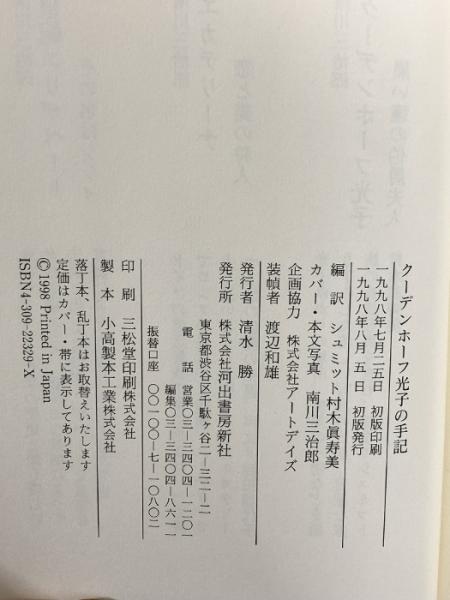 クーデンホーフ光子の手記
一九九八年七月二五日 初版印刷
一九九八年八月 五 日 初版発行
編訳 シュミット村木眞寿美
カバー・本文写真 南川三治郎
企画協力 株式会社アートデイズ
装幀者 渡辺和雄
発行者 清水 勝
発行所 株式会社河出書房新社
東京都渋谷区千駄ヶ谷二―三二―二
電話 営業〇三―三四〇四―一二〇一
編集〇三―三四〇四―八六一一
振替口座 〇〇一〇〇―七―一〇八〇二
印刷 三松堂印刷株式会社
製本 小高製本工業株式会社
落丁本、乱丁本はお取替えいたします
定価はカバー・帯に表示してあります
©1998 Printed in Japan
ISBN4-309-22329-X